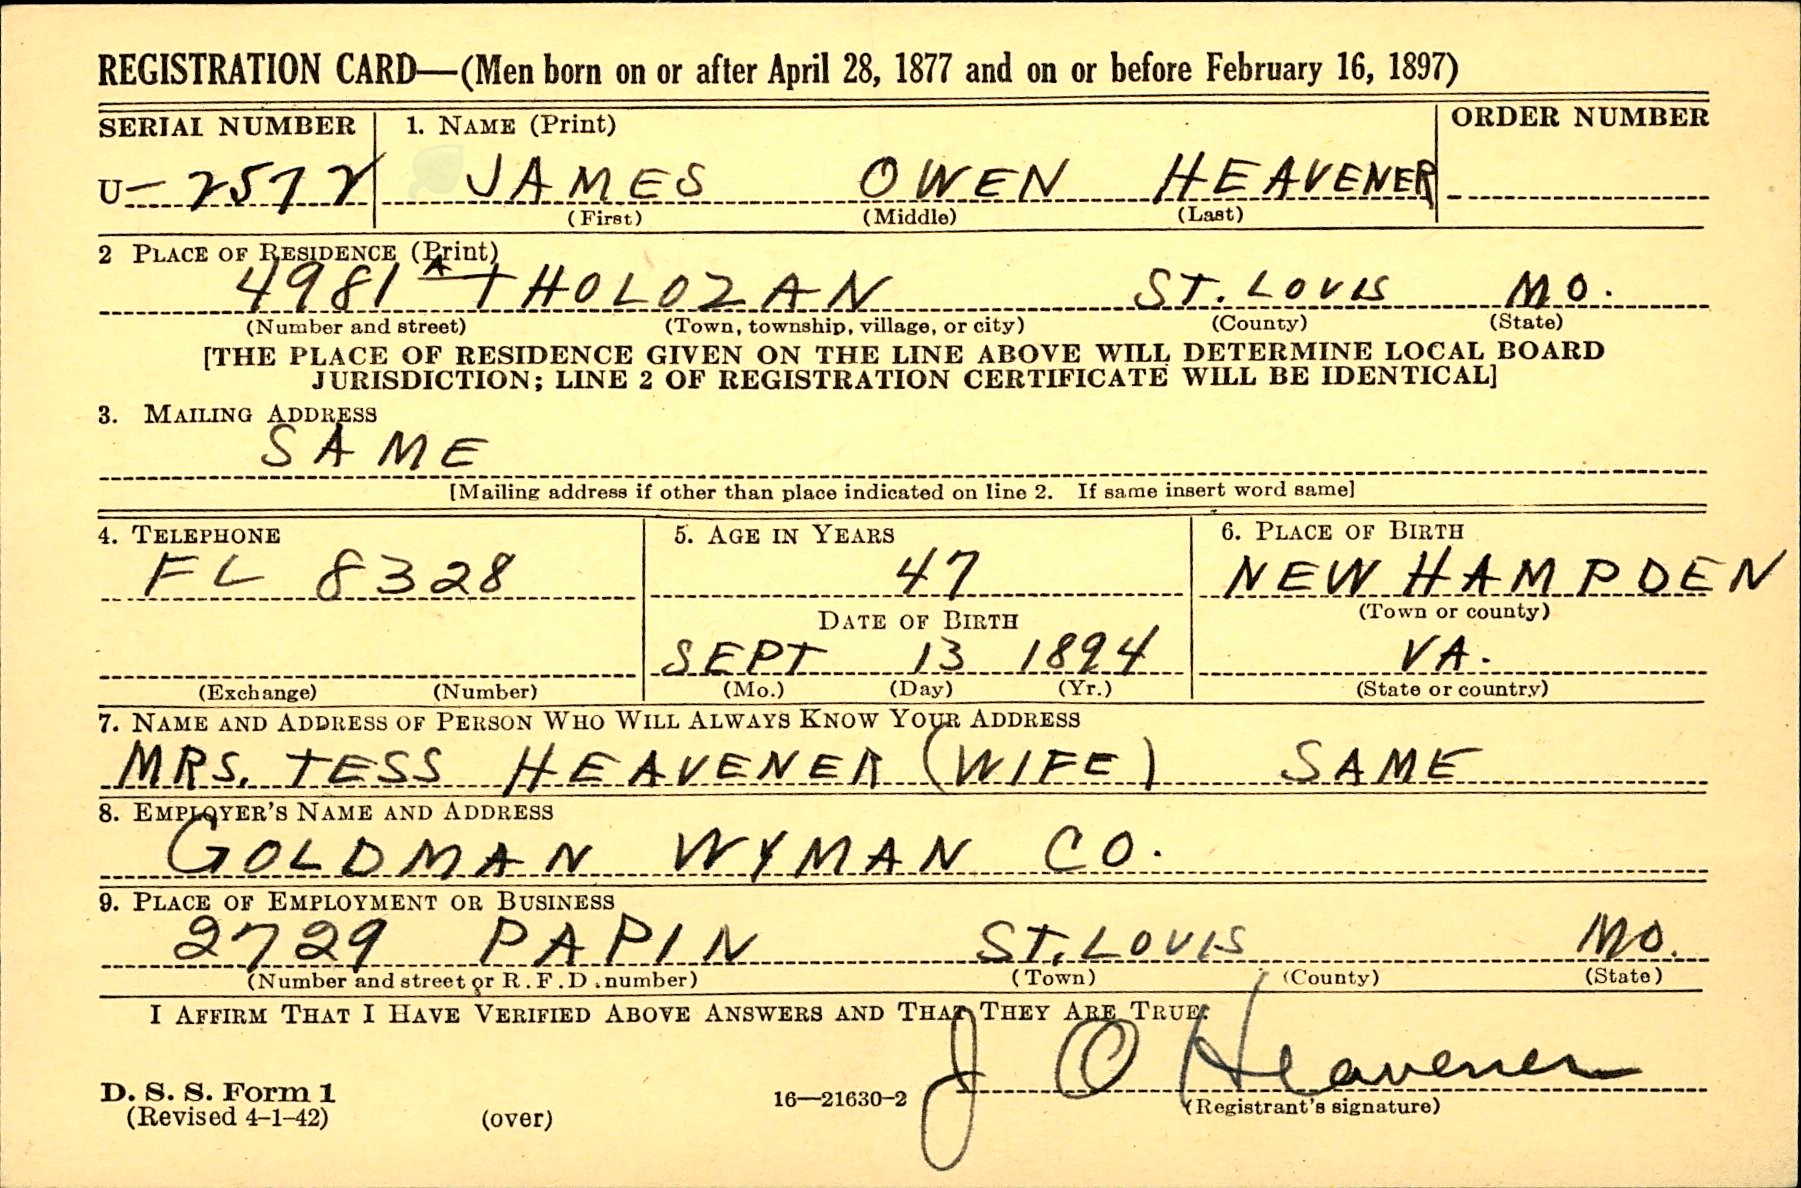 REGISTRATION CARD—(Men born on or after April 28, 1877 and on or before February 16, 1897)
SERIAL NUMBER 1. NAME (Print) ORDER NUMBER
U—2572 JAMES OWEN HEAVENER
(First) (Middle) (Last)
2 PLACE OF RESIDENCE (Print)
4981 A THOLOZAN ST. LOUIS MO.
(Number and street) (Town, township, village, or city) (County) (State)
[THE PLACE OF RESIDENCE GIVEN ON THE LINE ABOVE WILL DETERMINE LOCAL BOARD
JURISDICTION; LINE 2 OF REGISTRATION CERTIFICATE WILL BE IDENTICAL]
3. MAILING ADDRESS
SAME
[Mailing address if other than place indicated on line 2. If same insert word same]
4. TELEPHONE 5. AGE IN YEARS 6. PLACE OF BIRTH
FL 8328 47 NEW HAMPDEN
(Town or county)
DATE OF BIRTH
SEPT 13 1894 VA.
(Exchange) (Number) (Mo.) (Day) (Yr.) (State or country)
7. NAME AND ADDRESS OF PERSON WHO WILL ALWAYS KNOW YOUR ADDRESS
MRS. TESS HEAVENER (WIFE) SAME
8. EMPLOYER'S NAME AND ADDRESS
GOLDMAN WYMAN CO.
9. PLACE OF EMPLOYMENT OR BUSINESS
2729 PAPIN ST. LOUIS MO.
(Number and street or R.F.D. number) (Town) (County) (State)
I AFFIRM THAT I HAVE VERIFIED ABOVE ANSWERS AND THAT THEY ARE TRUE.
J O Heavener
D. S. S. Form 1
(Revised 4-1-42) (over) 16—21630-2 (Registrant's signature)